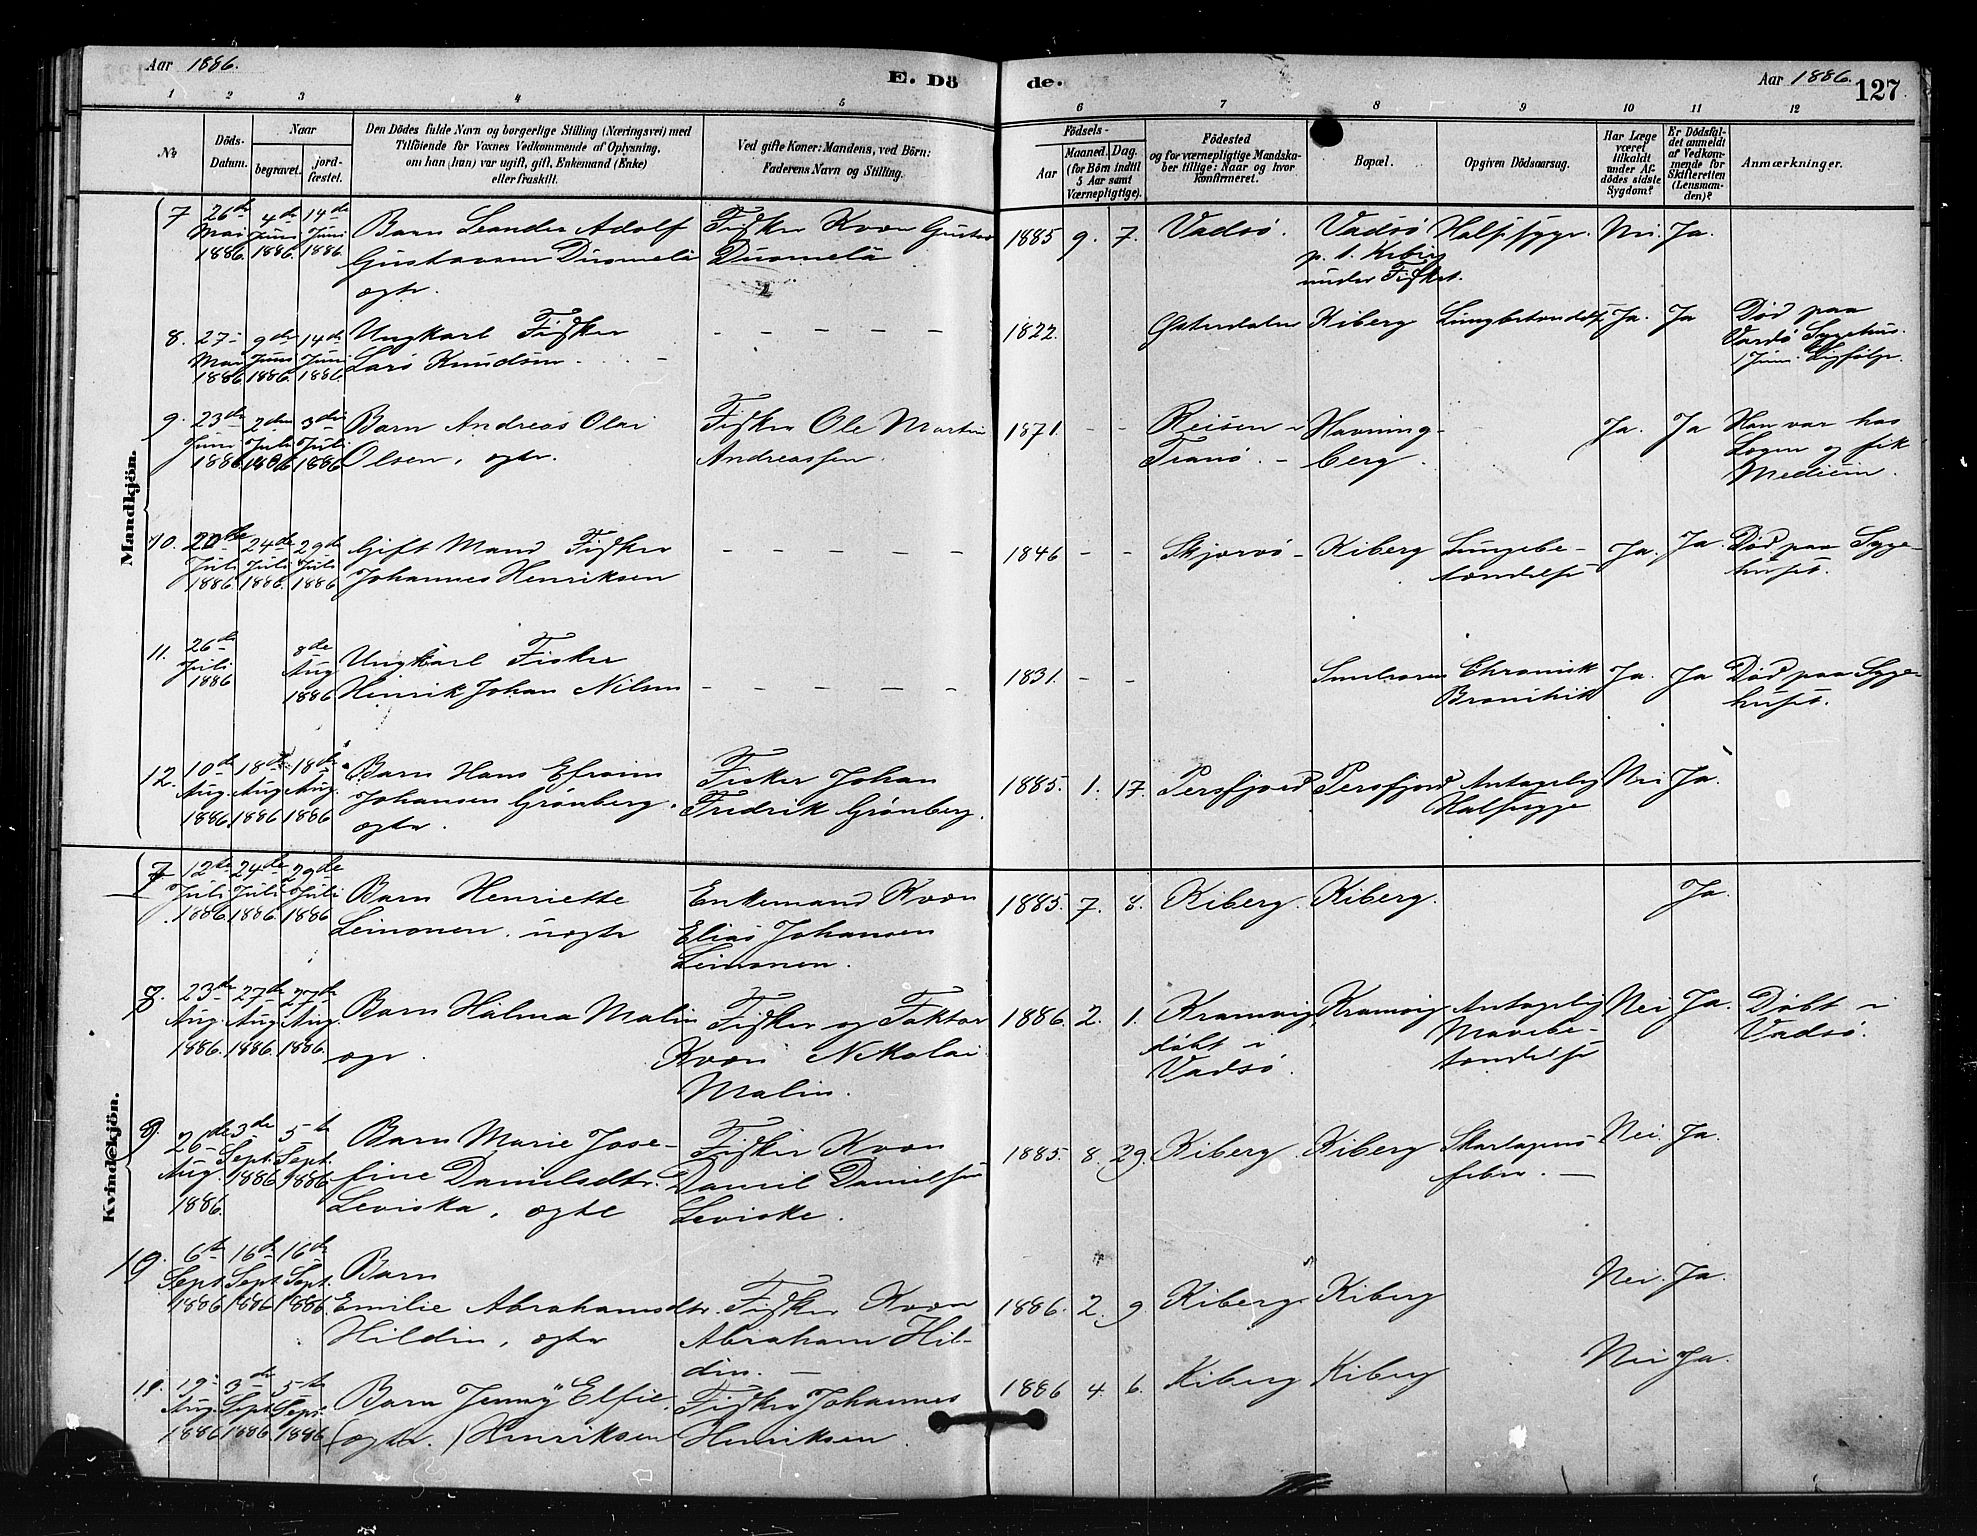 Aar 1886.
E. Dö
de.
Aar 1886.
127
1 2 3 4 5
6 7 8 9 10 11 12
No
Döds-Datum.
Naar
begravet.
jord-fæstet.
Den Dödes fulde Navn og borgerlige Stilling (Næringsvei) med
Tilföiende for Voxnes Vedkommende af Oplysning,
om han (hun) var ugift, gift, Enkemand (Enke)
eller fraskilt.
Ved gifte Koner: Mandens, ved Börn:
Faderens Navn og Stilling.
Födsels-
Aar
Maaned. Dag.
(for Börn indtil
5 Aar samt
Værnepligtige).
Födested
og for værnepligtige Mandska-
ber tillige: Naar og hvor
konfirmeret.
Bopæl.
Opgiven Dödsaarsag.
Har Læge
været
tilkaldt
under Af-
dödes sidste
Sygdom?
Er Dödsfal-
det anmeldt
af Vedkom-
mende for
Skifteretten
(Lensman-
den)?
Anmærkninger.
Mandkjön.
7 26de 4de 14de Barn Leander Adolf Fisker Kvæn Gustav 1885 9. 7. Vadsö. Vadsö Halssyge. Nei Ja.
Mai Juni Juni Gustavsen Duomela Duomela p. t. Kiberg
1886. 1886. 1886. ægte. under Fisket.
8. 27 9de 14de Ungkarl Fisker – – – – – 1822. Kiberg Lungebetændelse Ja. Ja Död paa
Mai Juni Juni Lars Knudsen. Vardö Sygehus.
1886 1886. 1886. 1 Juni.
9. 23de 2den 3die Barn Andreas Olai Fisker Ole Martin 1871. – – Reisen – Havning- Ja. Ja Han var hos
Juni Juli Juli Olsen, ægte. Andreassen. Tromsö. – berg. Lægen og fik
1886 1886 1886 Medicin.
10. 20de 24de 29de Gift Mand Fisker – – – – – 1846 – – Skjærvö – Kiberg Lungebe- Ja. Ja Död paa Syge-
Juli Juli Juli Johannes Henriksen tændelse huset.
1886. 1886. 1886
11. 26de 8de Ungkarl Fisker
Juli Aug Henrik Johan Nilsen – – – – – 1831. – – Chronisk Ja. Ja Död paa Syge-
1886 1886 huset.
12. 10de 18de 18de Barn Hans Efraim Fisker Johan 1885. 1. 17. Persfjord Persfjord Antagelig Nei Ja.
Aug. Aug. Aug. Johansen Grönberg. Fredrik Grönberg. Halssyge
1886. 1886 1886 ægte.
Kvindekjön.
7 12te 24de 29de Barn Henriette Enkemand Kvæn 1885. 7. 8. Kiberg. Kiberg. Ja.
Juli Juli Juli Leinonen. uægte Elias Johansen
1886. 1886. 1886 Leinonen.
8. 23de 27de 27de Barn Hilma Malin Fisker og Faktor 1886. 2. 1. Kramvig, Kramvig Antagelig Nei Ja. Döbt i
Aug. Aug. Aug. ægte. Kvæn Nikolai döbt i Mavebe- Vadsö.
1886. 1886. 1886. Malin. Vadsö. tændelse
9. 26de 3de 5te Barn Marie Jose- Fisker Kvæn 1885. 8. 29. Kiberg. Kiberg Skarlagens- Nei. Ja.
Aug. Sept. Sept. fine Danielsdtr. Daniel Danielsen feber. –
1886. 1886 1886 Leviska, ægte Leviske.
10. 6te 16de 16de Barn Nei. Ja.
Sept. Sept. Sept. Emilie Abrahamsdtr. Fisker Kvæn 1886. 2. 9. Kiberg. Kiberg
1886 1886 1886. Hildin, ægte Abraham Hil-
din. –
11. 19. 3de 5te Barn Jenny Elfie. Fisker Johannes 1886 4. 6. Kiberg Kiberg Nei Ja.
Aug. Sept Sept. (ægte.) Henriksen Henriksen.
1886 1886. 1886